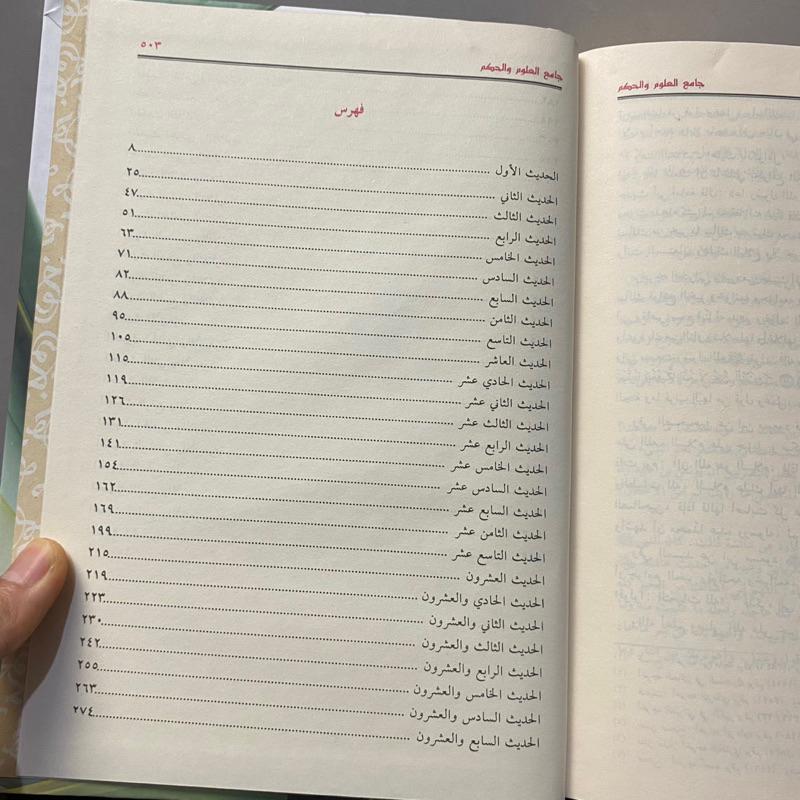 جامع العلوم والحكم ٥٠٣
فهرس
الحديث الأول ........ ٨
الحديث الثاني ........ ٢٥
الحديث الثالث ........ ٤٧
الحديث الرابع ........ ٥١
الحديث الخامس ........ ٦٣
الحديث السادس ........ ٧١
الحديث السابع ........ ٨٢
الحديث الثامن ........ ٨٨
الحديث التاسع ........ ٩٥
الحديث العاشر ........ ١٠٥
الحديث الحادي عشر ........ ١١٥
الحديث الثاني عشر ........ ١١٩
الحديث الثالث عشر ........ ١٢٦
الحديث الرابع عشر ........ ١٣١
الحديث الخامس عشر ........ ١٤١
الحديث السادس عشر ........ ١٥٤
الحديث السابع عشر ........ ١٦٢
الحديث الثامن عشر ........ ١٦٩
الحديث التاسع عشر ........ ١٩٩
الحديث العشرون ........ ٢١٥
الحديث الحادي والعشرون ........ ٢١٩
الحديث الثاني والعشرون ........ ٢٢٣
الحديث الثالث والعشرون ........ ٢٣٠
الحديث الرابع والعشرون ........ ٢٤٢
الحديث الخامس والعشرون ........ ٢٥٥
الحديث السادس والعشرون ........ ٢٦٣
الحديث السابع والعشرون ........ ٢٧٤
جامع العلوم والحكم